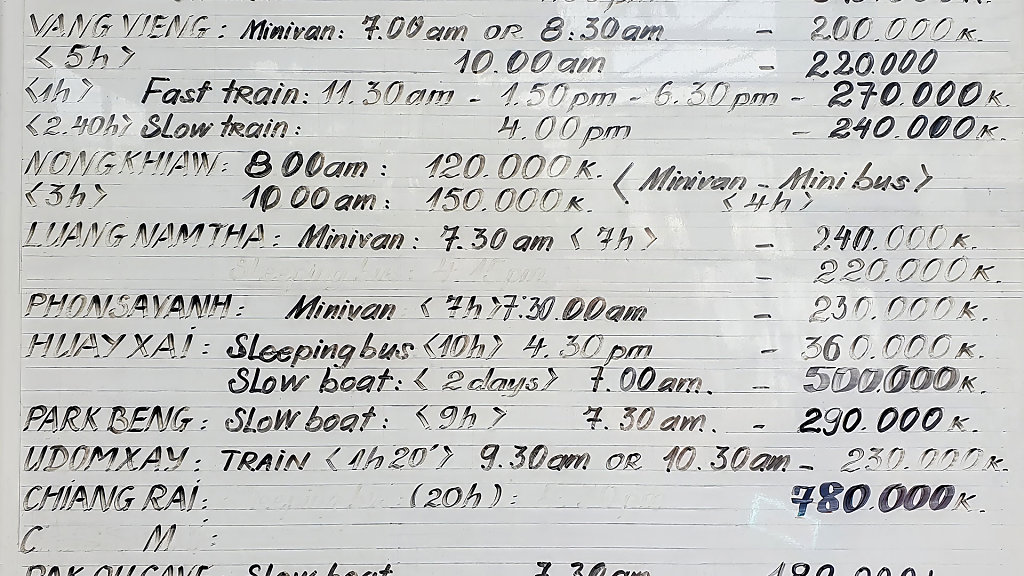 VANG VIENG: Minivan: 7.00am OR 8:30am - 200.000K.
<5h> 10.00am - 220.000
<1h> Fast train: 11.30am - 1.50pm - 6.30pm - 270.000K.
<2.40h> Slow train: 4.00pm - 240.000K.
NONGKHIAW: 8 00am: 120.000K. <Minivan - Mini bus>
<3h> 10 00am: 150.000K. <4h>
LUANG NAMTHA: Minivan: 7.30am <7h> - 240.000K.
Sleeping bus: - 220.000K.
PHONSAVANH: Minivan <7h>7:30.00am - 230.000K.
HUAY XAI: Sleeping bus <10h> 4.30pm - 360.000K.
Slow boat: <2days> 7.00am. - 500.000K.
PARK BENG: Slow boat: <9h> 7.30am. - 290.000K.
UDOMXAY: TRAIN <1h20'> 9.30am OR 10.30am - 230.000K.
CHIANG RAI: (20h): 780.000K.
C M :
Slow boat 7.30am